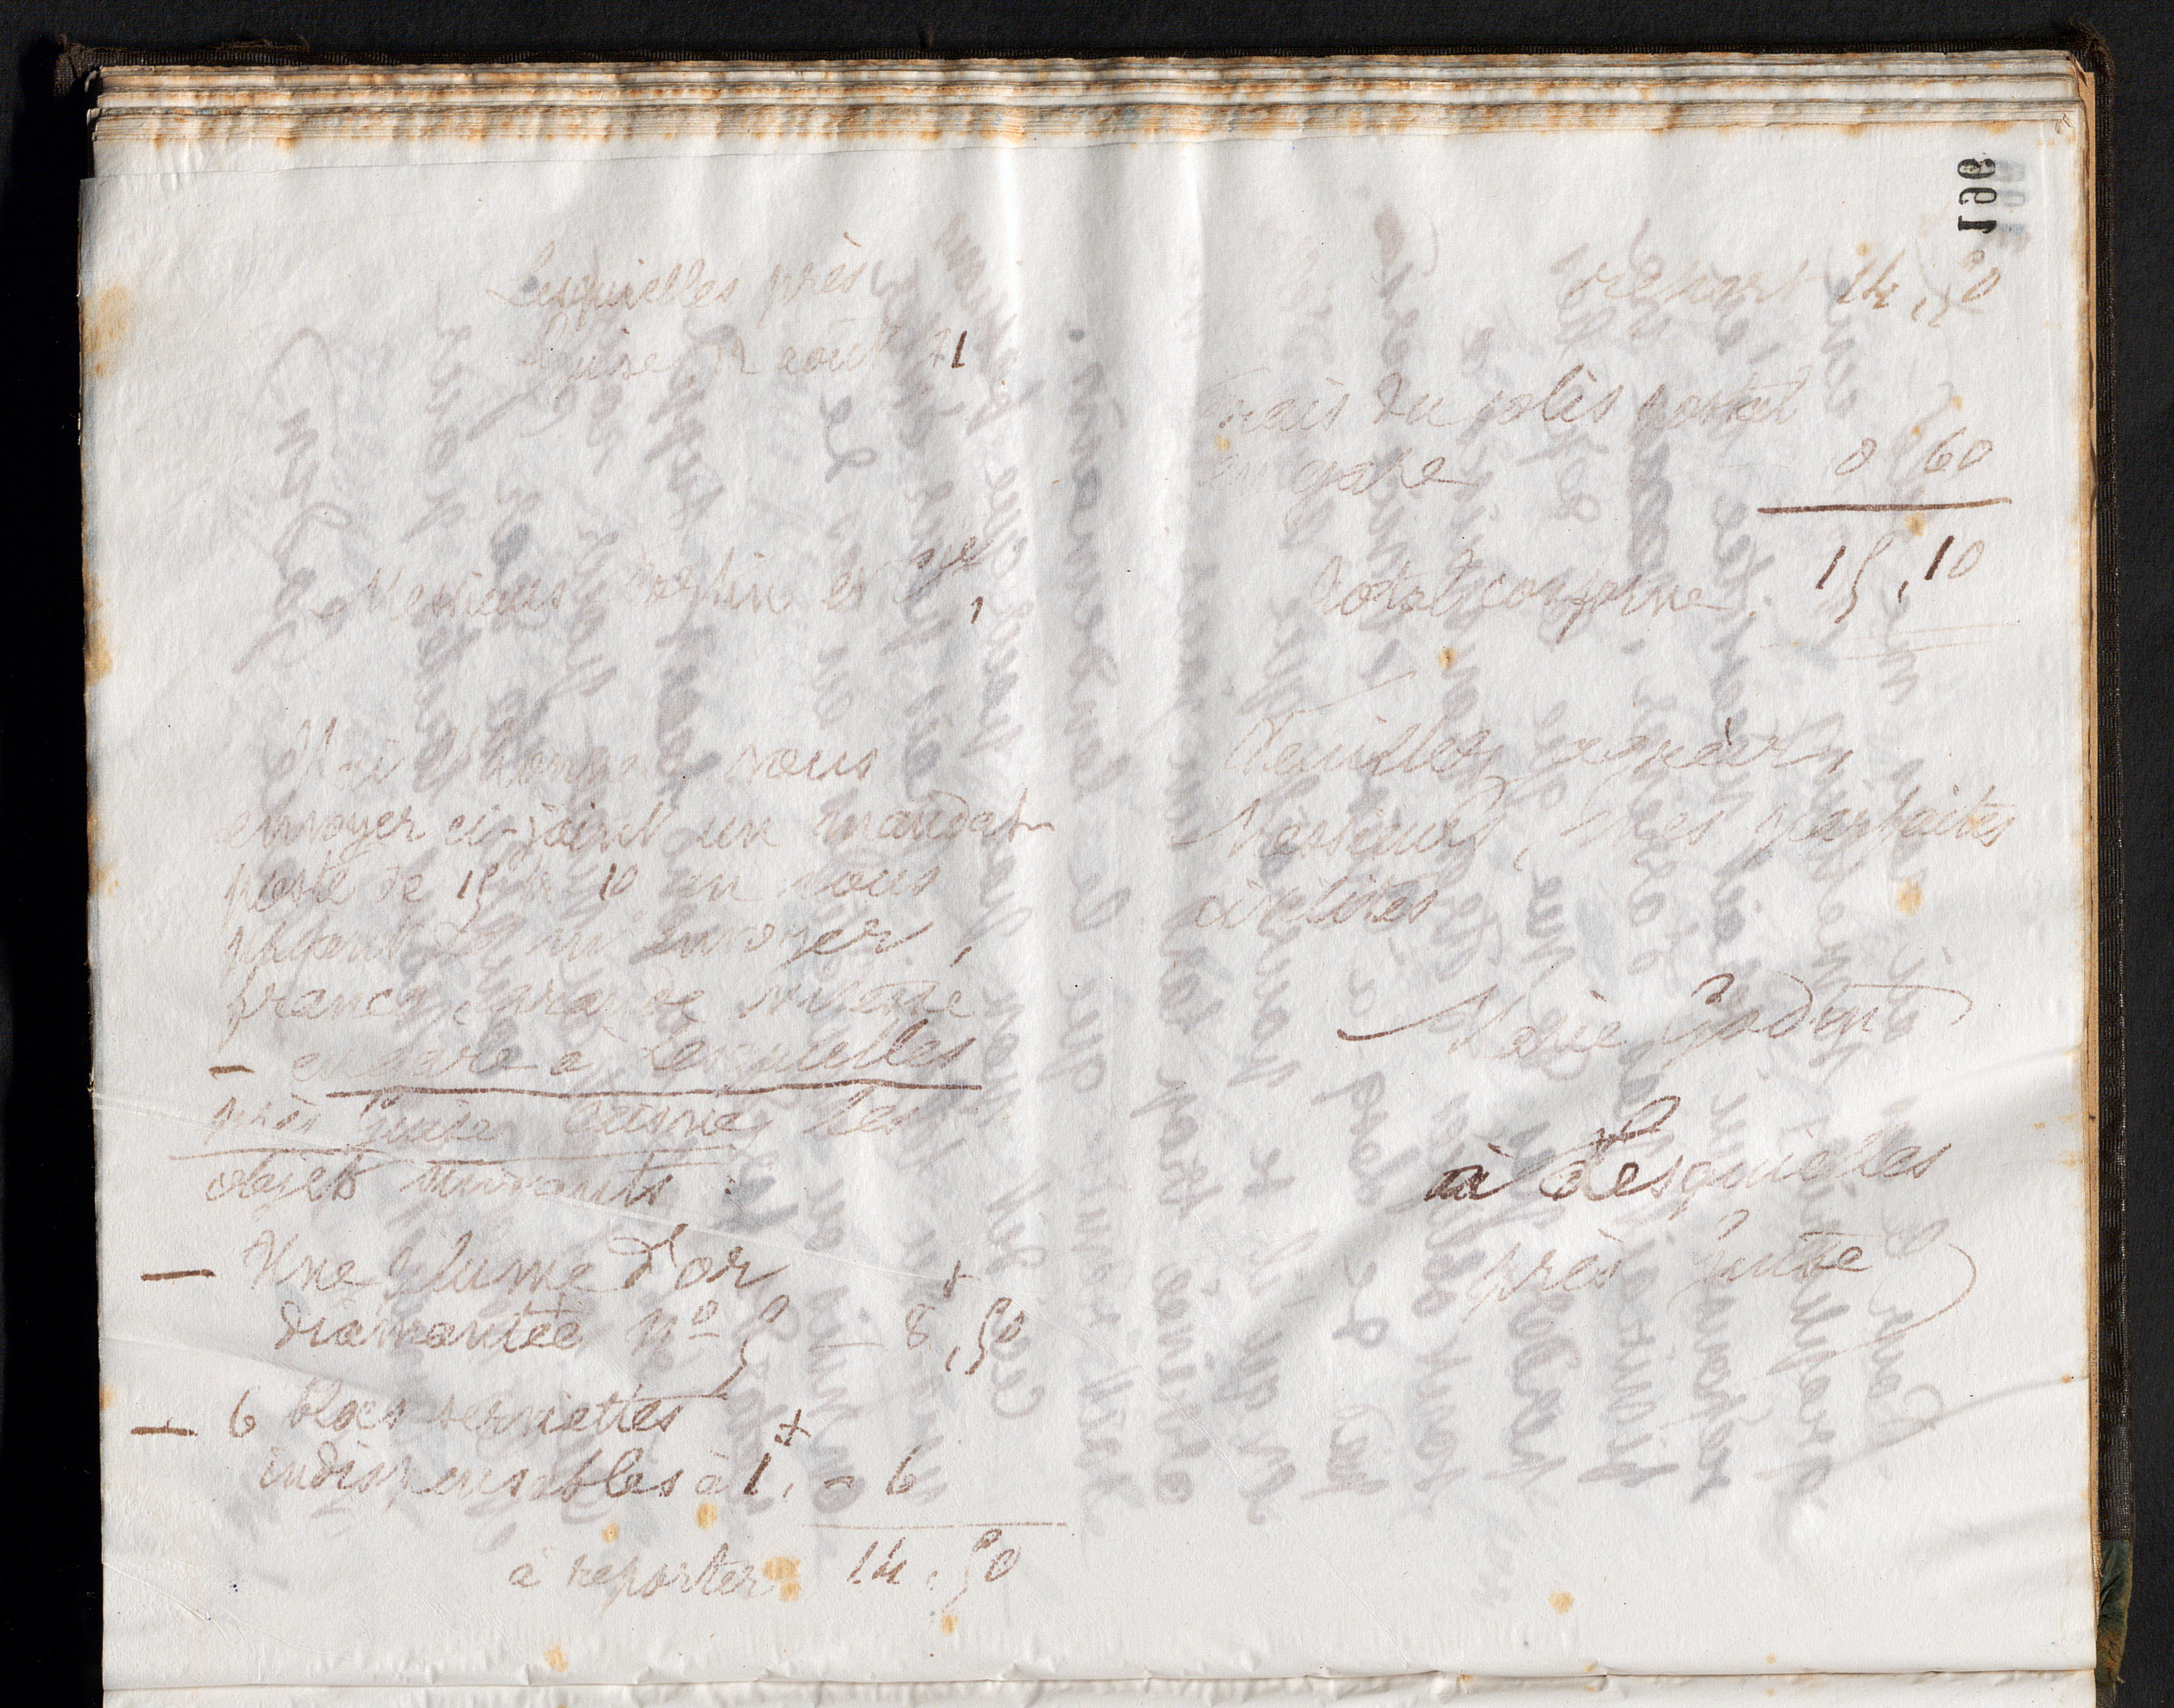 Lesquielles près
Guise 12 août 91
Messieurs et Cie,
J'ai l'honneur vous
envoyer ci-joint un mandat-
poste de 15 f 10 en vous
priant de m'envoyer,
franco, grande vitesse
- en gare à Lesquielles
près Guise Aisne, les
objets suivants :
- Une plume d'or
diamantée No 5 - 8,50
- 6 blocs serviettes
indispensables à 1, = 6
à reporter 14,50
199
report 14,50
Frais du colis postal
en gare 0 60
Total conforme 15,10
Veuillez agréer,
Messieurs, mes parfaites
civilités
Marie Godin
à Lesquielles
près Guise